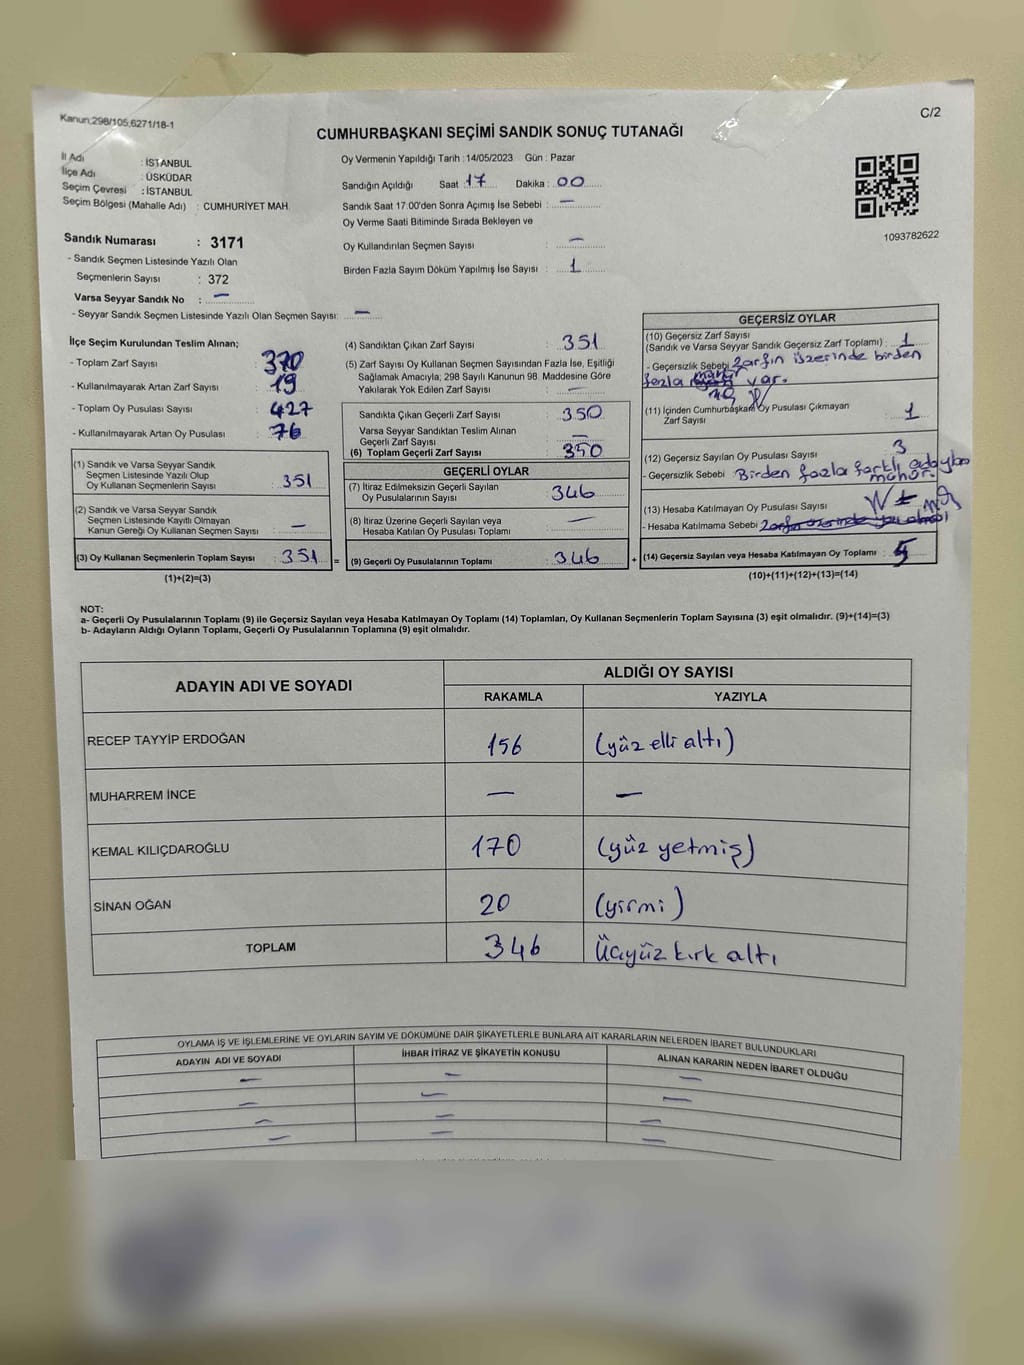 Kanun;298/105;6271/18-1
C/2
CUMHURBAŞKANI SEÇİMİ SANDIK SONUÇ TUTANAĞI
İl Adı : İSTANBUL
İlçe Adı : ÜSKÜDAR
Seçim Çevresi : İSTANBUL
Seçim Bölgesi (Mahalle Adı) : CUMHURİYET MAH.
Sandık Numarası : 3171
- Sandık Seçmen Listesinde Yazılı Olan
Seçmenlerin Sayısı : 372
Varsa Seyyar Sandık No : —
- Seyyar Sandık Seçmen Listesinde Yazılı Olan Seçmen Sayısı: —
Oy Vermenin Yapıldığı Tarih : 14/05/2023 Gün : Pazar
Sandığın Açıldığı Saat : 17 Dakika : 00
Sandık Saat 17:00'den Sonra Açımış İse Sebebi : —
Oy Verme Saati Bitiminde Sırada Bekleyen ve
Oy Kullandırılan Seçmen Sayısı : —
Birden Fazla Sayım Döküm Yapılmış İse Sayısı : 1
1093782622
İlçe Seçim Kurulundan Teslim Alınan;
- Toplam Zarf Sayısı : 370
- Kullanılmayarak Artan Zarf Sayısı : 19
- Toplam Oy Pusulası Sayısı : 427
- Kullanılmayarak Artan Oy Pusulası : 76
(1) Sandık ve Varsa Seyyar Sandık
Seçmen Listesinde Yazılı Olup
Oy Kullanan Seçmenlerin Sayısı : 351
(2) Sandık ve Varsa Seyyar Sandık
Seçmen Listesinde Kayıtlı Olmayan
Kanun Gereği Oy Kullanan Seçmen Sayısı : —
(3) Oy Kullanan Seçmenlerin Toplam Sayısı : 351 =
(1)+(2)=(3)
(4) Sandıktan Çıkan Zarf Sayısı : 351
(5) Zarf Sayısı Oy Kullanan Seçmen Sayısından Fazla İse, Eşitliği
Sağlamak Amacıyla; 298 Sayılı Kanunun 98. Maddesine Göre
Yakılarak Yok Edilen Zarf Sayısı : —
Sandıkta Çıkan Geçerli Zarf Sayısı : 350
Varsa Seyyar Sandıktan Teslim Alınan
Geçerli Zarf Sayısı : —
(6) Toplam Geçerli Zarf Sayısı : 350
GEÇERLİ OYLAR
(7) İtiraz Edilmeksizin Geçerli Sayılan
Oy Pusulalarının Sayısı : 346
(8) İtiraz Üzerine Geçerli Sayılan veya
Hesaba Katılan Oy Pusulası Toplamı : —
(9) Geçerli Oy Pusulalarının Toplamı : 346 +
GEÇERSİZ OYLAR
(10) Geçersiz Zarf Sayısı
(Sandık ve Varsa Seyyar Sandık Geçersiz Zarf Toplamı) : 1
- Geçersizlik Sebebi : Zarfın üzerinde birden
fazla mühür var.
(11) İçinden Cumhurbaşkanı Oy Pusulası Çıkmayan
Zarf Sayısı : 1
(12) Geçersiz Sayılan Oy Pusulası Sayısı : 3
- Geçersizlik Sebebi : Birden fazla farklı adayba
mühür.
(13) Hesaba Katılmayan Oy Pusulası Sayısı
- Hesaba Katılmama Sebebi
(14) Geçersiz Sayılan veya Hesaba Katılmayan Oy Toplamı : 5
(10)+(11)+(12)+(13)=(14)
NOT:
a- Geçerli Oy Pusulalarının Toplamı (9) ile Geçersiz Sayılan veya Hesaba Katılmayan Oy Toplamı (14) Toplamları, Oy Kullanan Seçmenlerin Toplam Sayısına (3) eşit olmalıdır. (9)+(14)=(3)
b- Adayların Aldığı Oyların Toplamı, Geçerli Oy Pusulalarının Toplamına (9) eşit olmalıdır.
ADAYIN ADI VE SOYADI
ALDIĞI OY SAYISI
RAKAMLA YAZIYLA
RECEP TAYYİP ERDOĞAN 156 (yüz elli altı)
MUHARREM İNCE — —
KEMAL KILIÇDAROĞLU 170 (yüz yetmiş)
SİNAN OĞAN 20 (yirmi)
TOPLAM 346 Üçyüz kırk altı
OYLAMA İŞ VE İŞLEMLERİNE VE OYLARIN SAYIM VE DÖKÜMÜNE DAİR ŞİKAYETLERLE BUNLARA AİT KARARLARIN NELERDEN İBARET BULUNDUKLARI
ADAYIN ADI VE SOYADI İHBAR İTİRAZ VE ŞİKAYETİN KONUSU ALINAN KARARIN NEDEN İBARET OLDUĞU
— — —
— — —
— — —
— — —